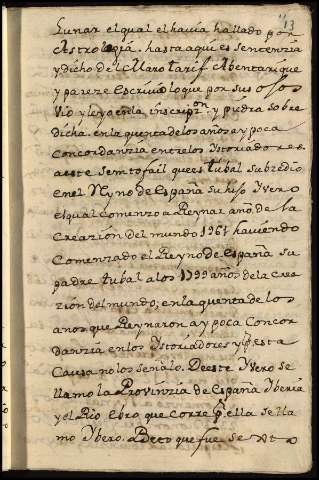 113
Lunar el qual el havia hallado por
Astrologiâ. hasta aqui es sentenzia
y dicho de el Maro tarif Abentariq que
y pareze Escrivio lo que por sus ojos
Vio y leyo en la inscripz.on y piedra sobre
dicha. en la quenta de los años ay poca
Concordanzia entre los Ystoriadores.
a este Semtofail que es tubal subzedio
en el Reyno de España su hijo Yvero
el qual comenzo a Reynar año, de la
Creazion del mundo 1961 haviendo
Comenzado el Reyno de España su
padre tubal a los 1799 años de la Crea
zion del mundo; en la quenta de los
anos que Reynaron ay poca Concor
danzia en los Ystoriadores y p esta
Causa no los señalo. De este Yvero se
llamo la Provinzia de España Yberia
y el Rio Ebro que corre p ella se lla
mo Ybero. a Deto que fue